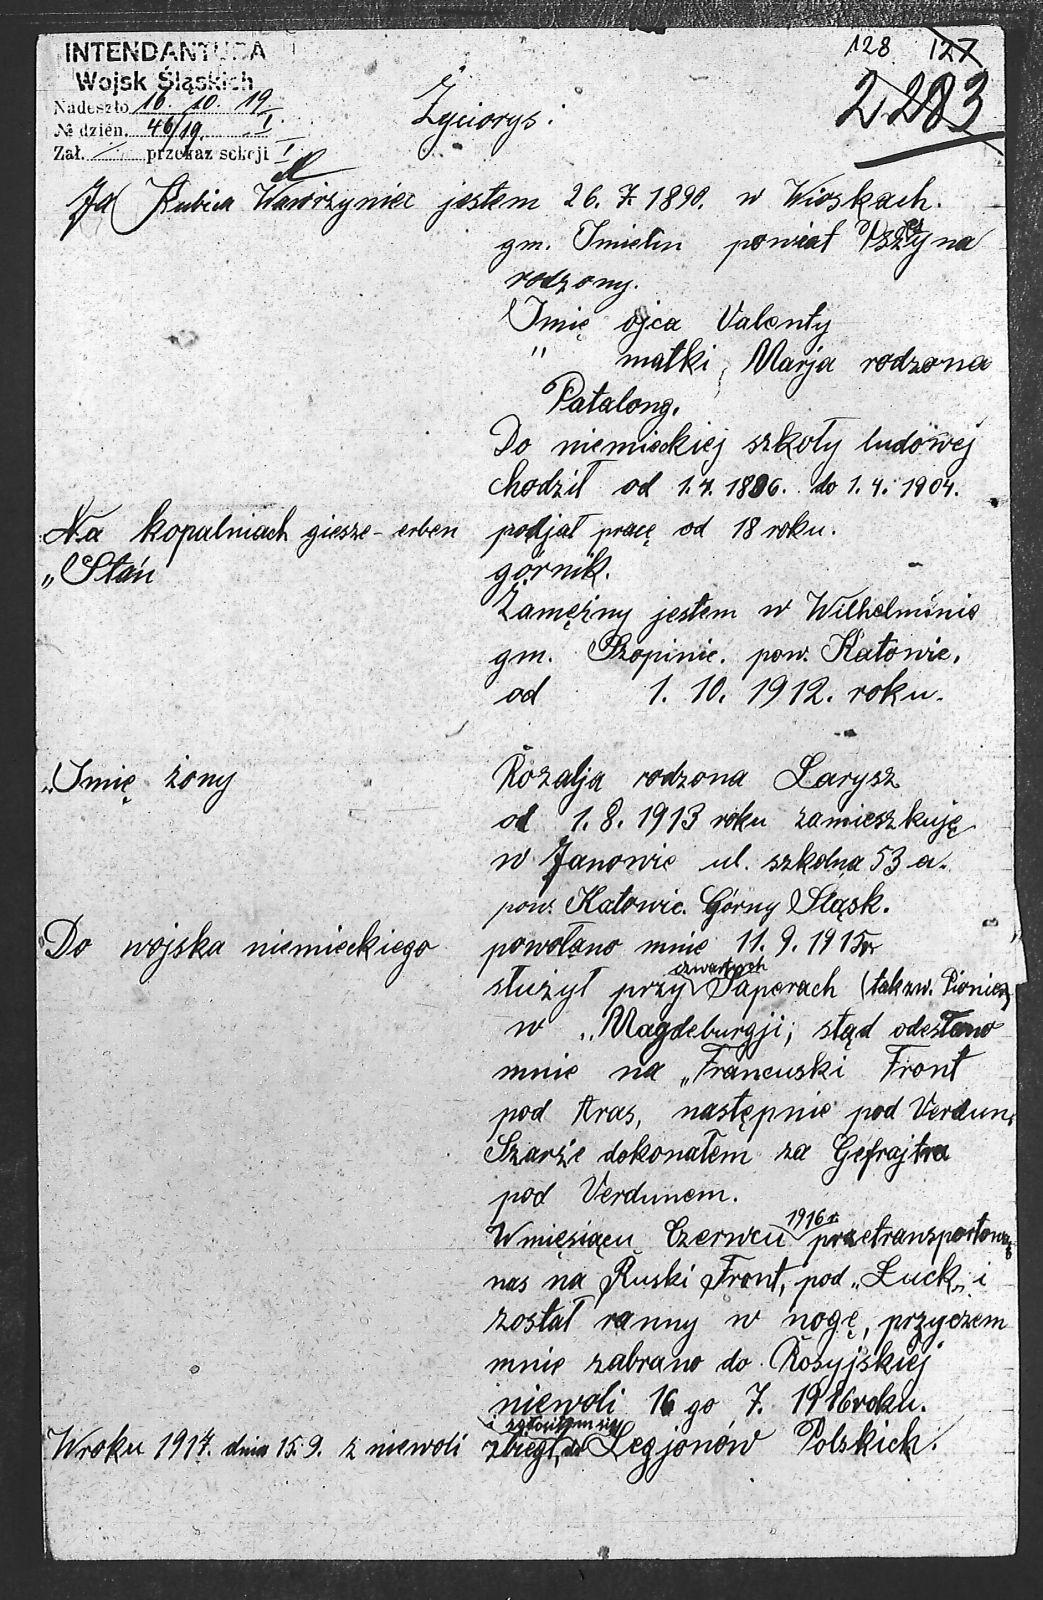 INTENDANTURA
Wojsk Śląskich
Nadeszło 16. 10. 19.
№ dzien. 46/19. I.
Zał. przekaz sekcji I
128 127
2283
Życiorys:
Ja Kubica Wawrzyniec jestem 26. 7. 1890. w Wioskach.
gm. Imielin powiat Pszczyna
rodzony.
Imię ojca Valenty
" matki, Marja rodzona
Patalong.
Do niemieckiej szkoły ludowej
chodził od 1. 4. 1896. do 1. 4. 1904.
Na kopalniach giesze-erben podjął pracę od 18 roku.
„Stan górnik.
Zamężny jestem w Wilhelminie
gm. Szopinic. pow. Katowic.
od 1. 10. 1912. roku.
„Imię żony Rozalja rodzona Larysz
od 1. 8. 1913 roku zamieszkuję
w Janowie ul. szkolna 53 a.
pow. Katowic. Górny Śląsk.
Do wojska niemieckiego powołano mnie 11. 9. 1915r.
czwartych
służył przy Saperach (tak zw. Pionierz)
w „Magdeburgji, stąd odesłano
mnie na „Francuski Front
pod Aras, następnie pod Verdun.
Szarże dokonałem za Gefrajtra
pod Verdunem.
1916 r.
W miesiącu Czerwcu przetransportowano
nas na Ruski Front, pod „Łuck„ i
został ranny w nogę, przyczem
mnie zabrano do Rosyjskiej
niewoli 16 go 7. 1916 roku.
W roku 1917. dnia 15. 9. z niewoli zbiegł, do Legjonów Polskich.